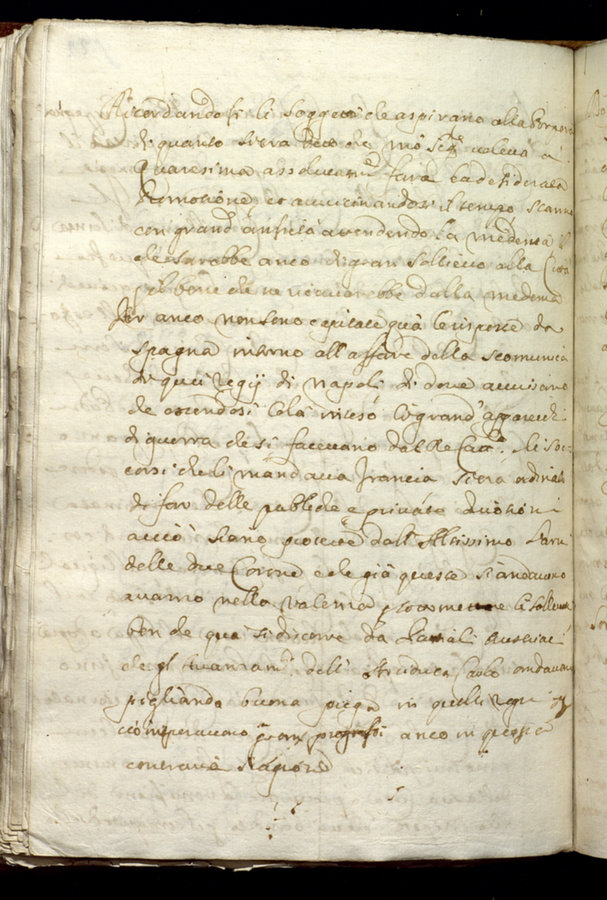 Ricordandosi li Soggetti che aspirano alla Porpora
di quanto s'era detto che
Quaresima assolutam.te farà la desiderata
Promotione et avvicinandosi il tempo stanno
con grand'ansietà attendendo la medema
che sarebbe anco di gran sollievo alla Città
pel bene che ne verrebbe dalla medema
Per anco non sono capitate quà le risposte da
Spagna intorno all'affare della scomunica
di quei Regij di Napoli di dove avvisano
che essendosi colà inteso li grand'apparecchi
di guerra che si facevano dal Re Catt.o li soc-
corsi che li mandava Francia s'era ordinato
di far delle publiche e private divotioni
acciò siano protette dall'Altissimo l'armi
delle due Corone e che già queste s'andavano
avanti nella Valenza
ben che quà si discorre da Austriaci
che gl'Avanzam.ti dell'Arciduca Carlo andavano
pigliando buona piega in quelli Regni
speravano gran progressi anco in questa
contraria stagione